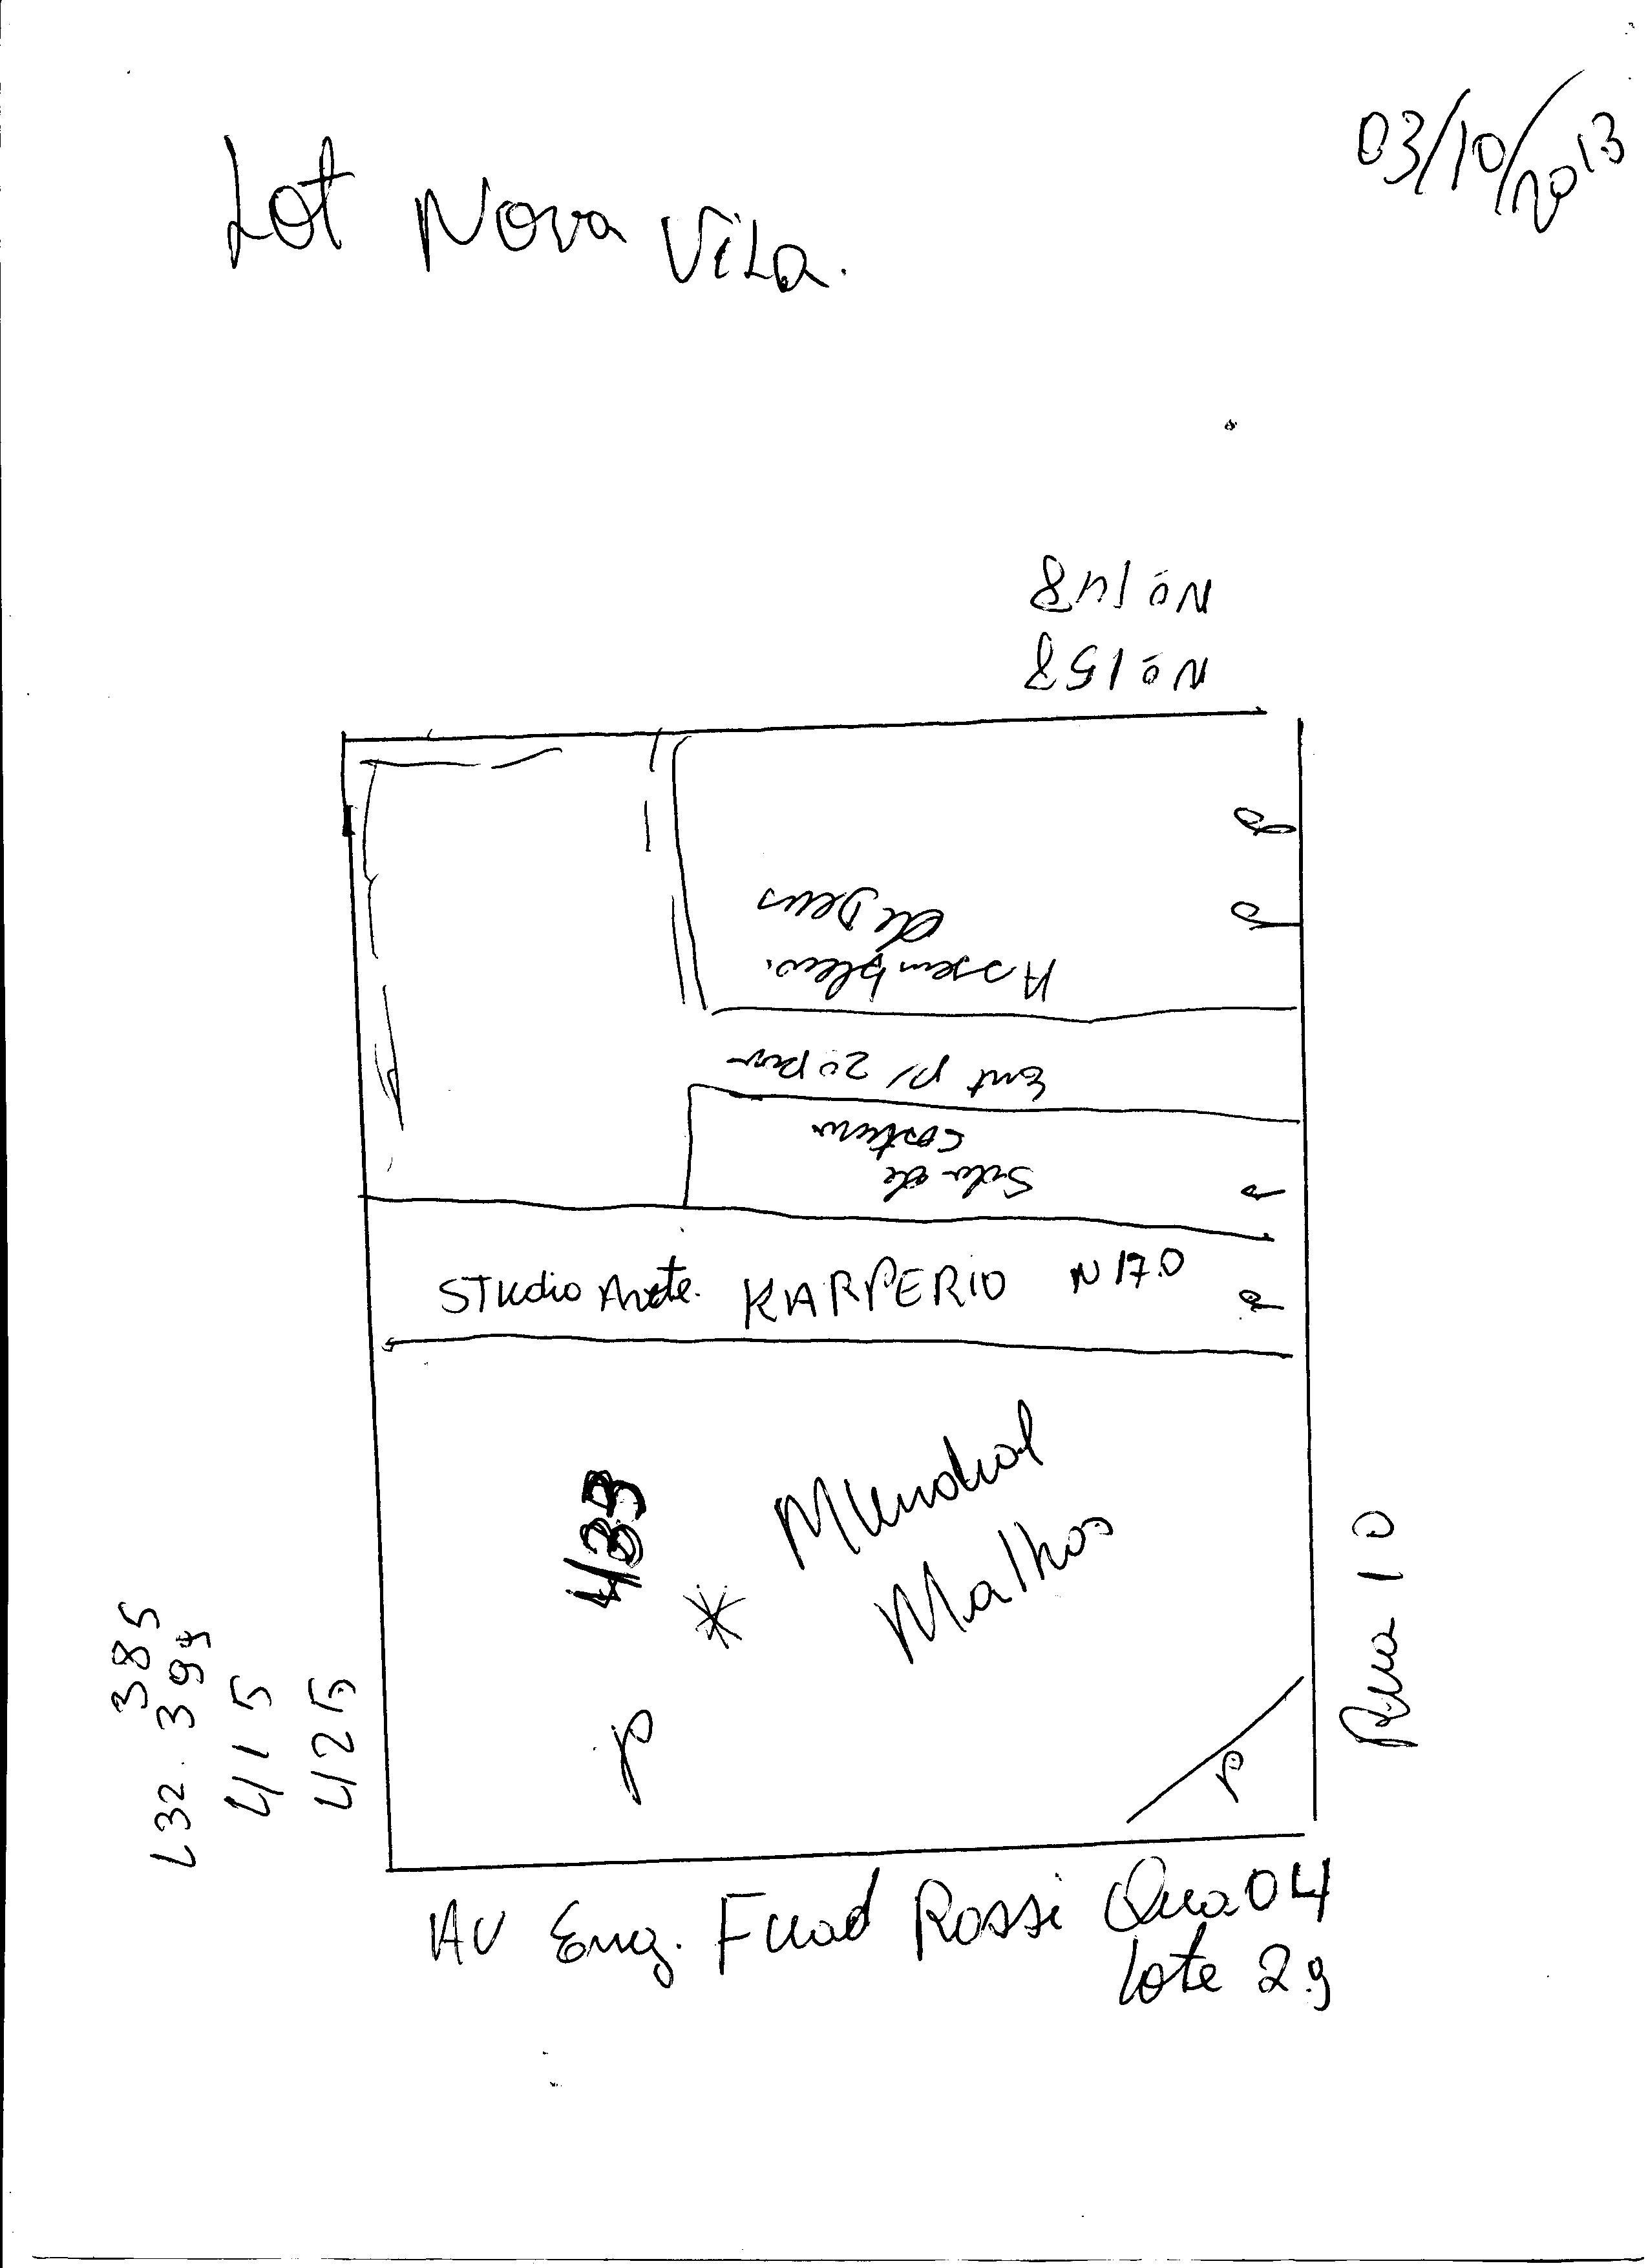 03/10/2013
Lot Nova Vila.
Nº 148
Nº 158
Assembleia
de Deus
Ent p/ 2º pav
Sala de
costura
Studio Arte. KARPERIO N 170
433
Mundial
Malhas
P
P
385
L32. 395
415
425
Rua 10
AV Eng. Fuad Rossi Qua 04
Lote 29